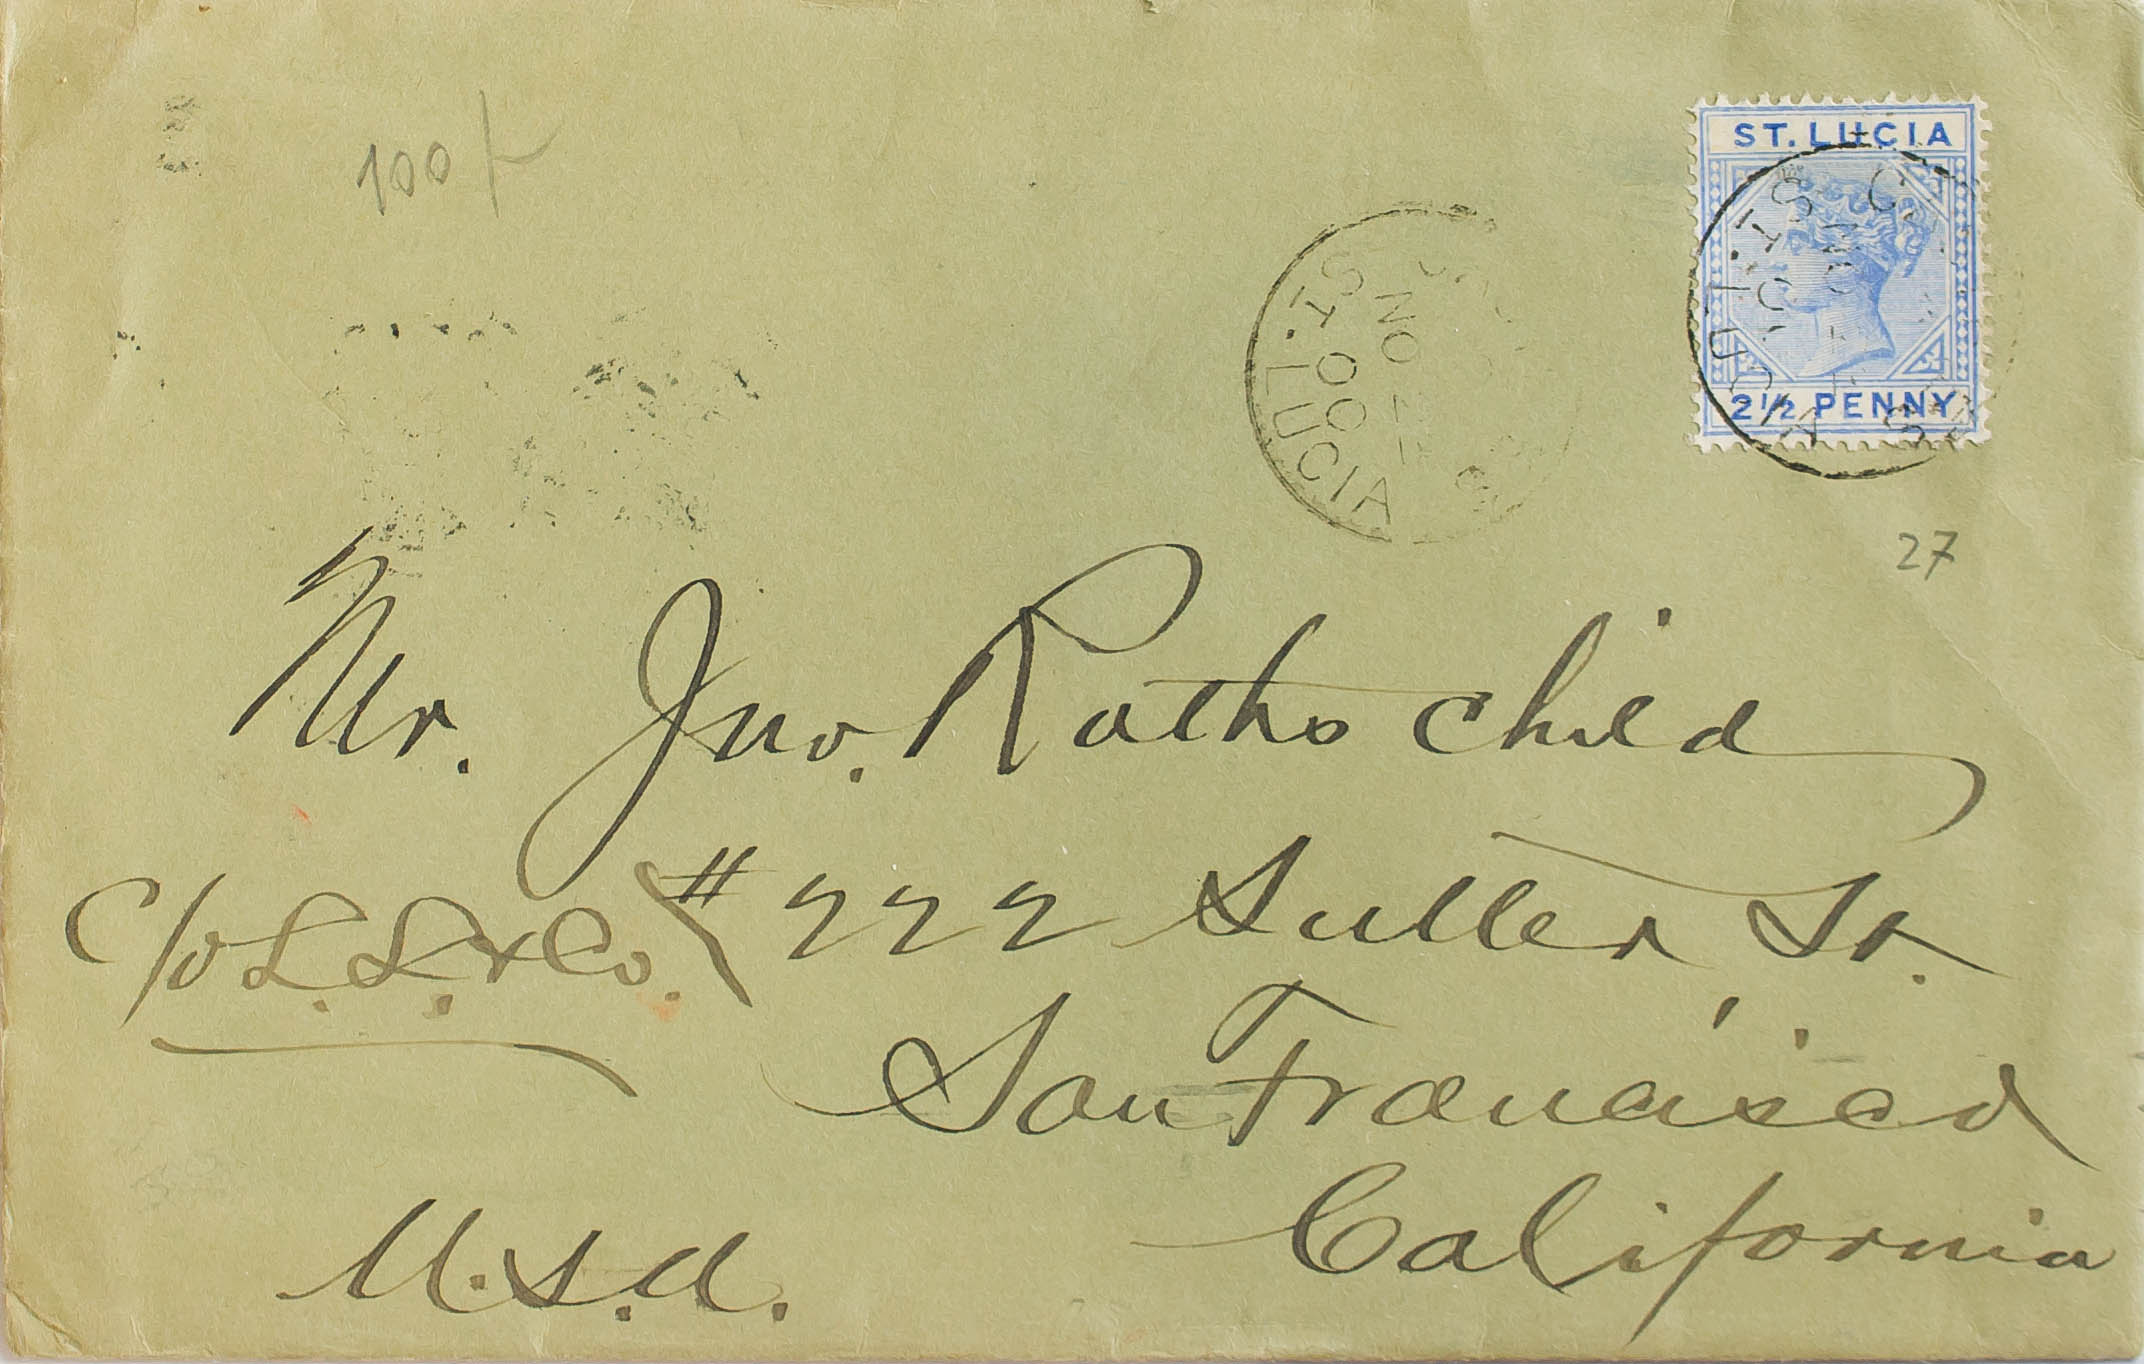 100/-
ST. LUCIA
2½ PENNY
ST. LUCIA
NO
00
ST. LUCIA
27
Mr. Jno. Rothschild
c/o L. S. & Co. #222 Sutter St.
San Francisco,
California
U.S.A.